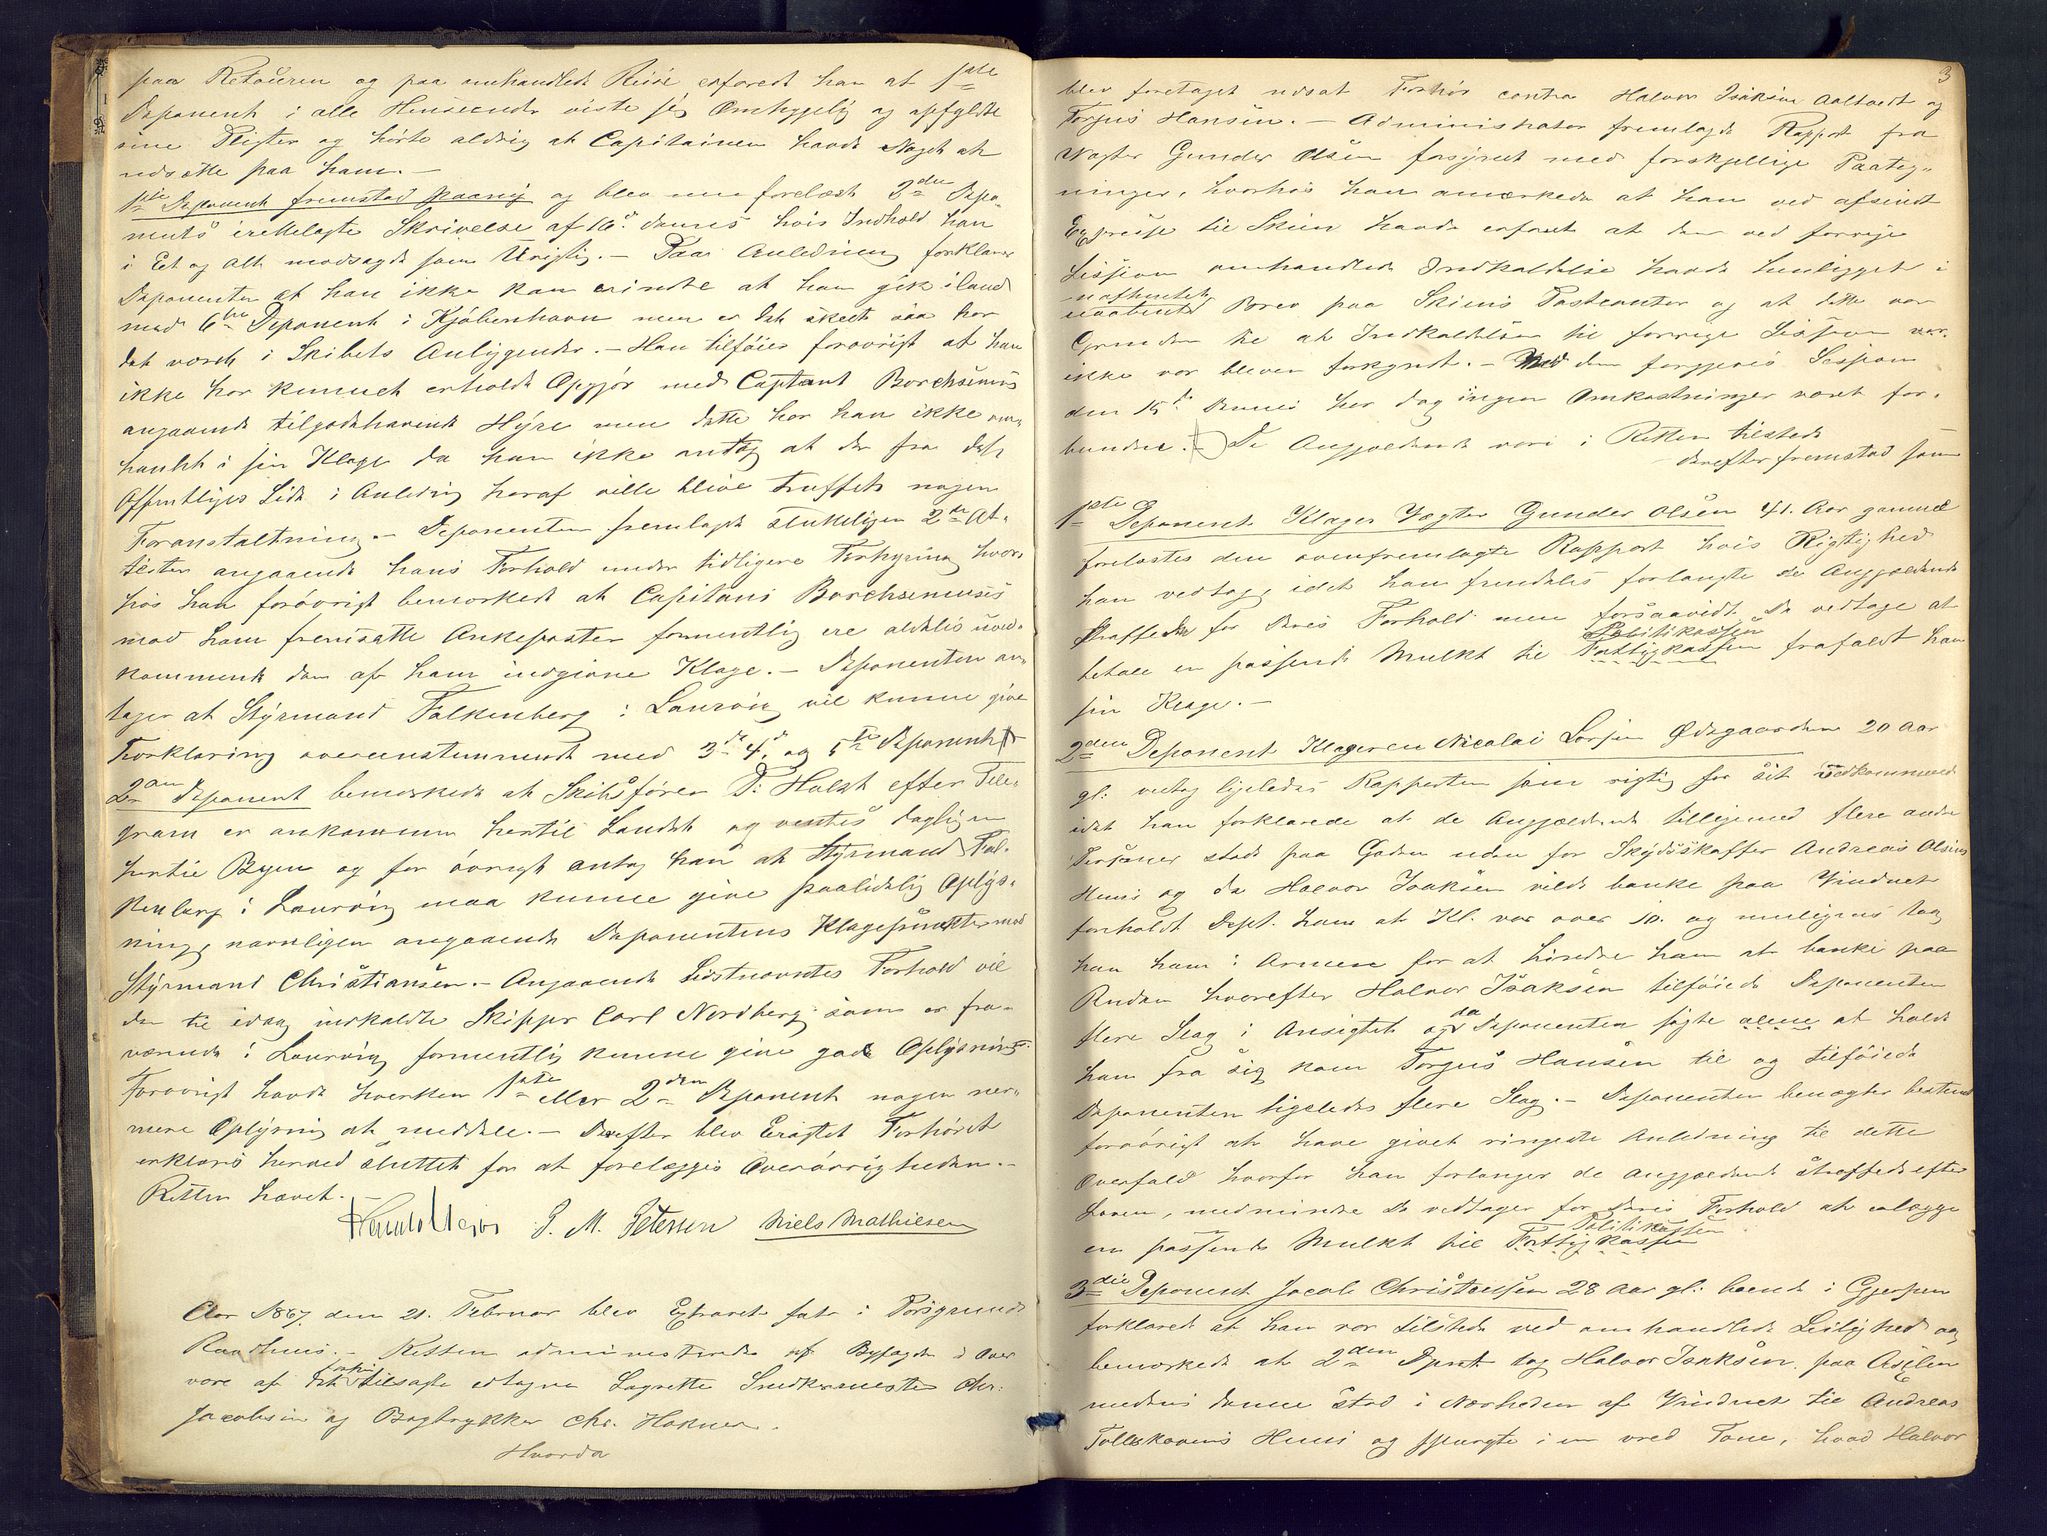 paa Retouren og paa omhandlede Reise erforedt han at 1ste
Deponent i alle Henseender viste sig Omhyggelig og opfyldte
sine Pligter og hørte aldrig at Capitainen havde Noget at
udsætte paa ham. —
1ste Deponent fremstod paany og blev nu forelæst 2den Depo-
nents irettelagte Skrivelse af 16de dennes hvis Indhold han
i Et og Alt modsagde som Urigtig. — Paa Anledning forklarer
Deponenten at han ikke kan erindre at han gik iland
med 6te Deponent i Kjøbenhavn men er det skeet saa har
det været i Skibets Anliggender. — Han tilføier forøvrigt at han
ikke har kunnet erholde Opgjør med Captain Borchsenius
angaaende tilgodehavende Hyre men dette har han ikke om-
handlet i sin Klage da han ikke antog at der fra det
Offentliges Side i Anledning heraf ville blive truffet nogen
Foranstaltning. — Deponenten fremlagde slutteligen 2de At-
tester angaaende hans Forhold under tidligere Forhyring hvor-
hos han forøvrigt bemærkede at Capitain Borchseniuses
mod ham fremsatte Ankeposter formentlig ere aldeles uved-
kommende den af ham indgivne Klage. — Deponenten an-
tager at Styrmand Falkenberg i Laurvig vil kunne give
Forklaring overensstemmende med 3de 4de og 5te Deponent
2den Deponent bemærkede at Skibsfører P. Holst efter Tele-
gram er ankommen hertil Landet og ventes dagligen
hertil Byen og for øvrigt antog han at Styrmand Fal-
kenberg i Laurvig maa kunne give paalidelig Oplys-
ning, navnligen angaaende Deponentens Klagepunkter mod
Styrmand Christiansen. — Angaaende Sidstnævntes Forhold vil
den til idag indkaldte Skipper Carl Nordberg som er fra-
værende i Laurvig formentlig kunne give gode Oplysning.
Forøvrigt havde hverken 1ste eller 2den Deponent nogen nær-
mere Oplysning at meddele. — Derefter blev Extraret Forhøret
erklæret herved sluttet for at forelægges Overøvrigheden. —
Retten hævet. —
P. M. Petersen Niels Mathiesen
Aar 1867 den 21. Februar blev Extraret sat i Porsgrunds
Raadhuus. — Retten administreredes af Byfogden i Over
være af tilsagte edtagne Lagrette Snedkermester Chr.
Jacobsen og Bogtrykker Chr. Hakner.
Hvorda
3
blev foretaget udsat Forhør contra Halvor Isaksen Aaltvedt og
Torjus Hansen. — Administrator fremlagde Rapport fra
Vægter Gunder Olsen forsynet med forskjellige Paateg-
ninger, hvorhos han anmærkede at han ved afsendt
Expresse til Skien havde erfaret at den ved forrige
Session omhandlede Indkaldelse havde henligget i
uafhentet
Brev paa Skiens Postcontor og at dette var
Grunden til at Indkaldelsen til forrige Session var
ikke var bleven forkyndt. — Med den forgjeves Session
den 15de dennes har dog ingen Omkostninger været for-
bunden. — De Angjældende vare i Retten tilstede
derefter fremstod som
1ste Deponent Klager Vægter Gunder Olsen 41. Aar gammel
forelæstes den ovenfremlagte Rapport hvis Rigtighed
han vedtog, idet han fremdeles forlangte de Angjældende
straffede for deres Forhold men forsaavidt de vedtage at
Politikassen
betale en passende Mulkt til Fattigkassen frafaldt han
sin Klage. —
2den Deponent Klageren Nicolai Larsen Ødegaarden 20 Aar
gl: vedtog ligeledes Rapporten som rigtig for sit Vedkommende
idet han forklarede at de Angjældende tilligemed flere andre
Personer stode paa Gaden uden for Skydsskaffer Andreas Olsens
Huus og da Halvor Isaksen vilde banke paa Vinduet
forholdt Dept. ham at Kl. var over 10. og muligens tog
han ham i Armen for at hindre ham at banke paa
Ruden hvorefter Halvor Isaksen tilføiede Deponenten
flere Slag i Ansigtet og da Deponenten søgte alene at holde
ham fra sig kom Torjus Hansen til og tilføiede
Deponenten ligeledes flere Slag. — Deponenten benægter bestemt
forøvrigt at have givet ringeste Anledning til dette
Overfald hvorfor han forlanger de Angjældende straffede efter
Loven, medmindre de vedtager for deres Forhold at erlægge
Politikassen
en passende Mulkt til Fattigkassen
3die Deponent Jacob Christensen 28 Aar gl: boende i Gjerpen
forklarede at han var tilstede ved omhandlede Leilighed og
bemærkede at 2den Dpnt tog Halvor Isaksen paa Axelen
medens denne stod i Nærheden af Vinduet til Andreas
Tolleskovens Huus og spurgte i en vred Tone, hvad Halvor